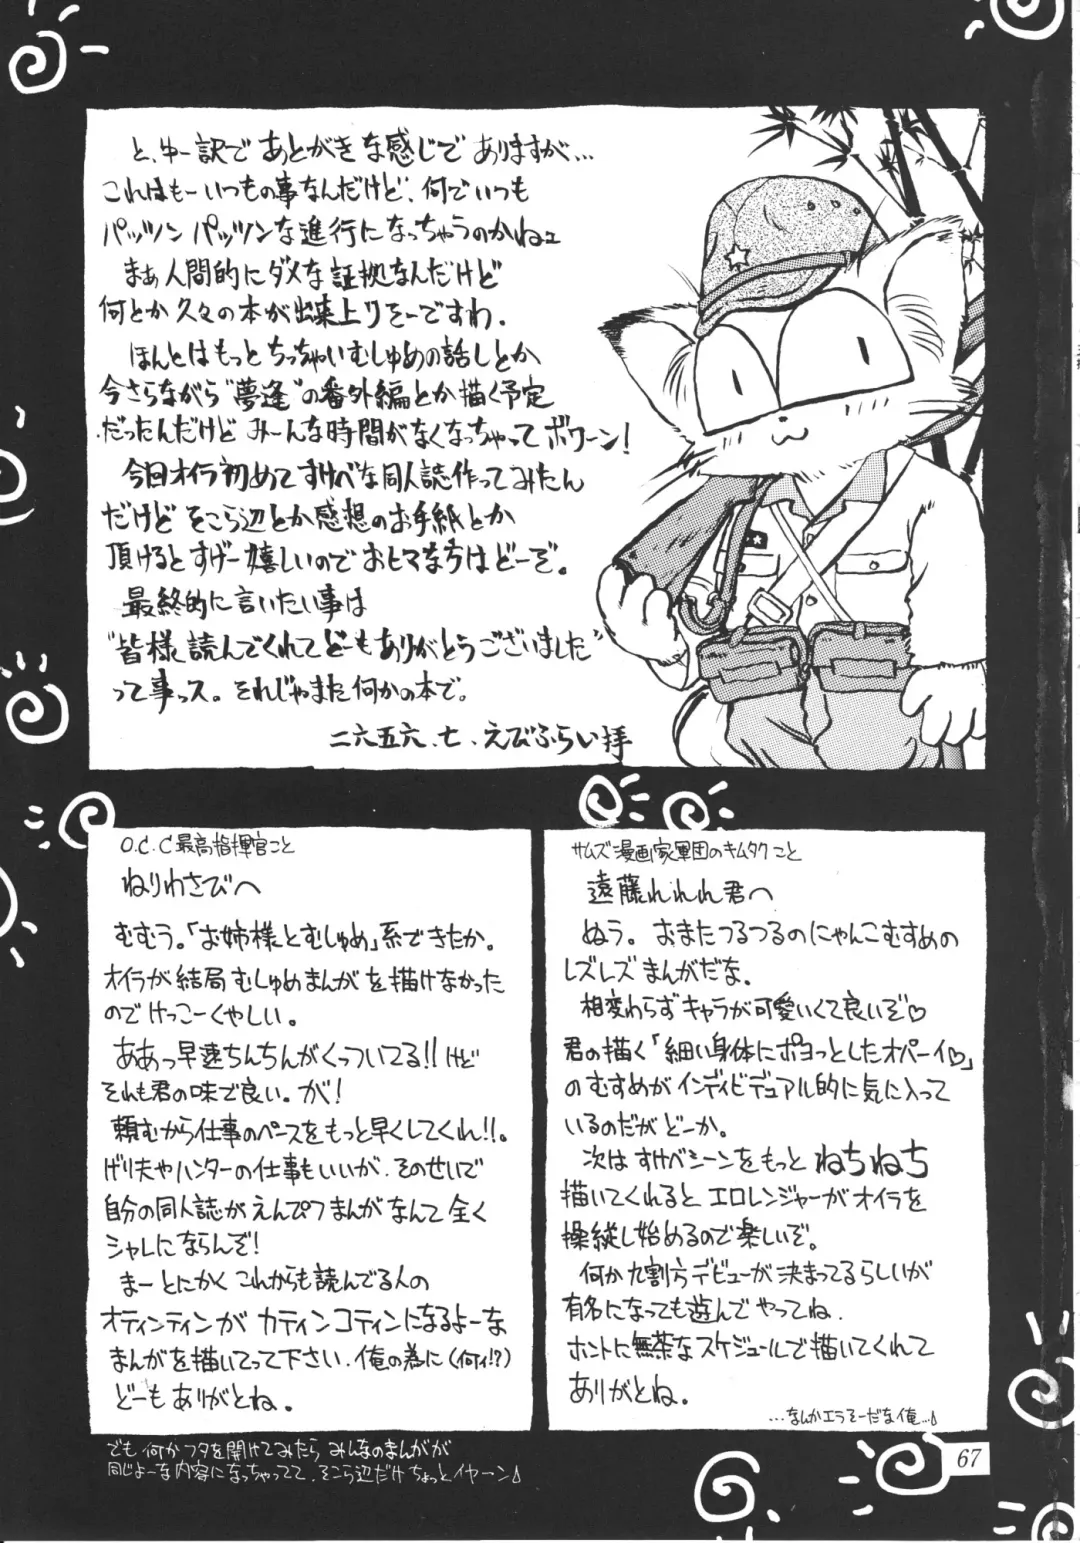 と、ゆー訳で あとがきな感じで ありますが…
これはもー いつもの事なんだけど、何でいつも
パッツン パッツンな進行になっちゃうのかねェ
まぁ人間的にダメな証拠なんだけど
何とか久々の本が出来上りそーですわ。
ほんとはもっと ちっちゃいむしゅめの話しとか
今さらながら"夢逢"の番外編とか描く予定
だったんだけど みーんな時間がなくなっちゃって ボワーン!
今回オイラ初めて すけべな同人誌作ってみたん
だけど そこら辺とか感想のお手紙とか
頂けると すげー嬉しいので おヒマな方はどーぞ。
最終的に言いたい事は
"皆様読んでくれてどーもありがとうございました"
って事っス。それじゃまた何かの本で。
二六五六、七、えびふらい拝
O.C.C最高指揮官こと
ねりわさびへ
むむう。「お姉様とむしゅめ」系できたか。
オイラが結局むしゅめまんがを描けなかった
のでけっこーくやしい。
ああっ早速ちんちんがくっついてる!!けど
それも君の味で良い。が!
頼むから仕事のペースをもっと早くしてくれ!!。
げり夫やハンターの仕事もいいが、そのせいで
自分の同人誌がえんぴつまんがなんて全く
シャレにならんぞ!
まーとにかく これからも読んでる人の
オティンティンが カティンコティンになるよーな
まんがを描いてって下さい、俺の為に(何ィ!?)
どーもありがとね。
サムズ漫画家軍団のキムタクこと
遠藤れれれ君へ
ぬう。おまたつるつるのにゃんこむすめの
レズレズまんがだな。
相変わらずキャラが可愛いくて良いぞ♡
君の描く「細い身体にポヨっとしたオパーイ♡」
のむすめがインディビデュアル的に気に入って
いるのだがどーか。
次は すけべシーンをもっと ねちねち
描いてくれると エロレンジャーがオイラを
操縦し始めるので楽しいぞ。
何か九割方デビューが決まってるらしいが
有名になっても遊んでやってね、
ホントに無茶なスケジュールで描いてくれて
ありがとね。
…なんかエラそーだな俺…
でも 何か フタを開けてみたら みんなのまんがが
同じよーな内容になっちゃってて、そこら辺だけちょっとイヤーン
67